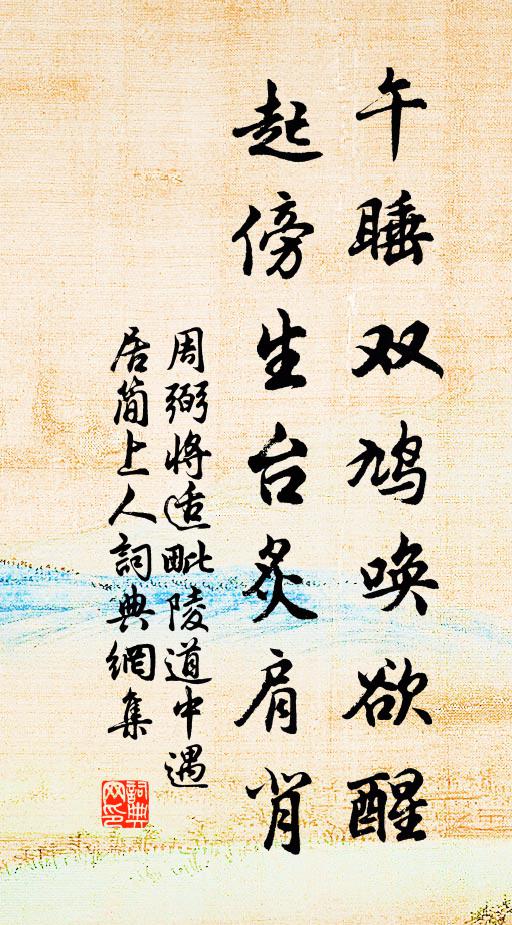 午睡双鸠唤欲醒
起傍生台炙肩背
周弼将适毗陵道中遇
居简上人詞典網集
詞典网印